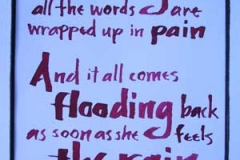 all the words are
wrapped up in pain
And it all comes
flooding back
as soon as she feels
the rain